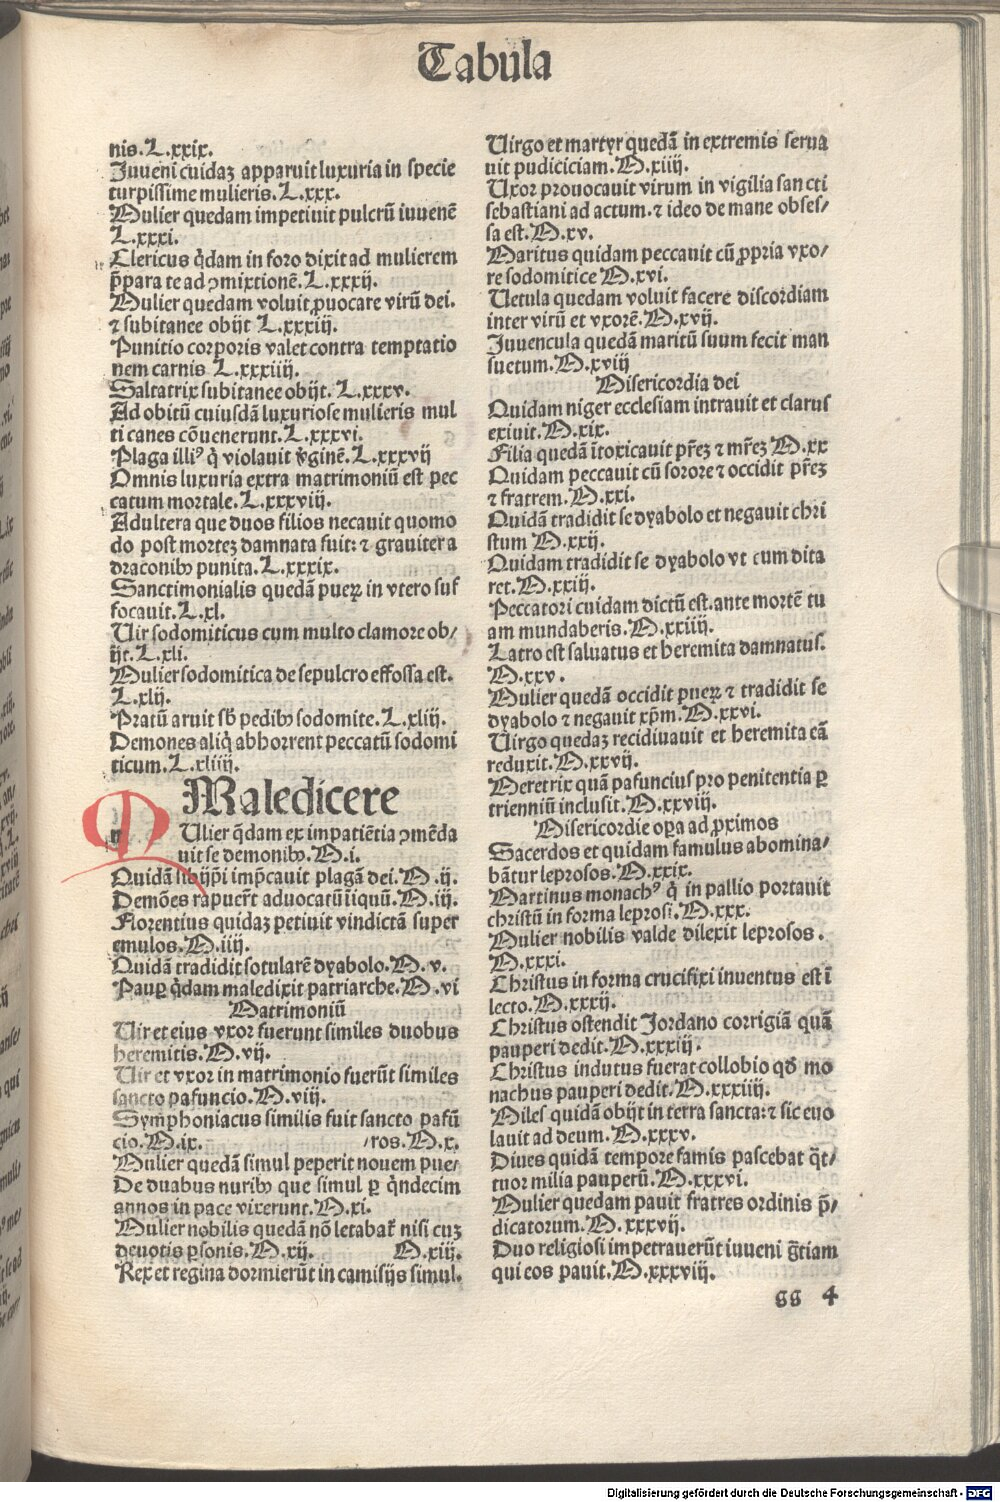 Tabula
nis. L.xxix.
Juueni cuidaʒ apparuit luxuria in specie
turpissime mulieris. L.xxx.
Mulier quedam impetiuit pulcrū iuuenē
L.xxxi.
Clericus q̄dam in foro dixit ad mulierem
p̄para te ad ꝯmixtionē. L.xxxij.
Mulier quedam voluit ꝓuocare virū dei.
⁊ subitanee obijt L.xxxiij.
Punitio corporis valet contra temptatio
nem carnis L.xxxiiij.
Saltatrix subitanee obijt. L.xxxv.
Ad obitū cuiusdā luxuriose mulieris mul
ti canes cōuenerunt. L.xxxvi.
Plaga illiꝰ q̇ violauit v̓ginē. L.xxxvij
Omnis luxuria extra matrimoniū est pec
catum mortale. L.xxxviij.
Adultera que duos filios necauit quomo
do post morteʒ damnata fuit: ⁊ grauiter a
draconibꝰ punita. L.xxxix.
Sanctimonialis quedā puerꝝ in vtero suf
focauit. L.xl.
Uir sodomiticus cum multo clamore ob/
ijt. L.xli.
Mulier sodomitica de sepulcro effossa est.
L.xlij.
Pratū aruit sb̄ pedibꝰ sodomite. L.xliij.
Demones aliq̇ abhorrent peccatū sodomi
ticum. L.xliiij.
Maledicere
Mulier q̄dam ex impatiētia ꝯmēda
uit se demonibꝰ. M.i.
Quidā sibijp̄i imp̄cauit plagā dei. M.ij.
Demōes rapuer̄t aduocatū iiquū. M.iij.
Florentius quidaʒ petiuit vindictā super
emulos. M.iiij.
Quidā tradidit sotularē dyabolo. M.v.
Pauꝑ q̄dam maledixit patriarche. M.vi
Matrimoniū
Uir et eius vxor fuerunt similes duobus
heremitis. M.vij.
Uir et vxor in matrimonio fuerūt similes
sancto pafuncio. M.viij.
Symphoniacus similis fuit sancto pafū
cio. M.ix. /ros. M.x.
Mulier quedā simul peperit nouem pue/
De duabus nuribꝰ que simul ꝑ q̇ndecim
annos in pace vixerunt. M.xi.
Mulier nobilis quedā nō letabat̄ nisi cuʒ
deuotis ꝑsonis. M.xij. M.xiij.
Rex et regina dormierūt in camisijs simul.
Uirgo et martyr quedā in extremis serua
uit pudiciciam. M.xiiij.
Uxor prouocauit virum in vigilia sancti
sebastiani ad actum. ⁊ ideo de mane obses/
sa est. M.xv.
Maritus quidam peccauit cū ꝓpria vxo/
re sodomitice M.xvi.
Uetula quedam voluit facere discordiam
inter virū et vxorē. M.xvij.
Juuencula quedā maritū suum fecit man
suetum. M.xviij
Misericordia dei
Quidam niger ecclesiam intrauit et clarus
exiuit. M.xix.
Filia quedā ītoxicauit pr̄eʒ ⁊ mr̄eʒ M.xx
Quidam peccauit cū sorore ⁊ occidit pr̄eʒ
⁊ fratrem. M.xxi.
Quidā tradidit se dyabolo et negauit chri
stum M.xxij.
Quidam tradidit se dyabolo vt eum dita
ret. M.xxiij.
Peccatori cuidam dictū est. ante mortē tu
am mundaberis. M.xxiiij.
Latro est saluatus et heremita damnatus.
M.xxv.
Mulier quedā occidit puerꝝ ⁊ tradidit se
dyabolo ⁊ negauit xp̄m. M.xxvi.
Uirgo quedaʒ recidiuauit et heremita eā
reduxit. M.xxvij.
Meretrix quā pafuncius pro penitentia ꝑ
trienniū inclusit. M.xxviij.
Misericordie oꝑa ad ꝓximos
Sacerdos et quidam famulus abomina/
bātur leprosos. M.xxix.
Martinus monachꝰ q̇ in pallio portauit
christū in forma leprosi. M.xxx.
Mulier nobilis valde dilexit leprosos.
M.xxxi.
Christus in forma crucifixi inuentus est ī
lecto. M.xxxij.
Christus ostendit Jordano corrigiā quā
pauperi dedit. M.xxxiij.
Christus indutus fuerat collobio qd̄ mo
nachus pauperi dedit. M.xxxiiij.
Miles quidā obijt in terra sancta: ⁊ sic euo
lauit ad deum. M.xxxv.
Diues quidā tempore famis pascebat q̄t/
tuor milia pauperū. M.xxxvi.
Mulier quedam pauit fratres ordinis p̄/
dicatorum. M.xxxvij.
Duo religiosi impetrauerūt iuueni gr̄tiam
qui eos pauit. M.xxxviij.
gg 4
Digitalisierung gefördert durch die Deutsche Forschungsgemeinschaft - DFG